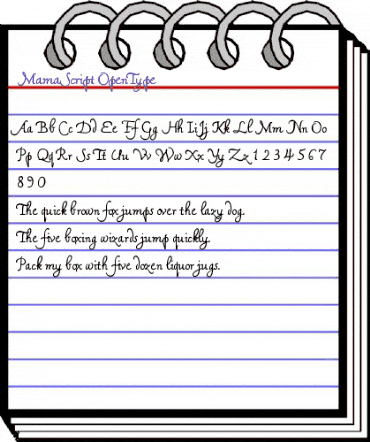 Mama Script OpenType
Aa Bb Cc Dd Ee Ff Gg Hh Ii Jj Kk Ll Mm Nn Oo
Pp Qq Rr Ss Tt Uu Vv Ww Xx Yy Zz 1 2 3 4 5 6 7
8 9 0
The quick brown fox jumps over the lazy dog.
The five boxing wizards jump quickly.
Pack my box with five dozen liquor jugs.